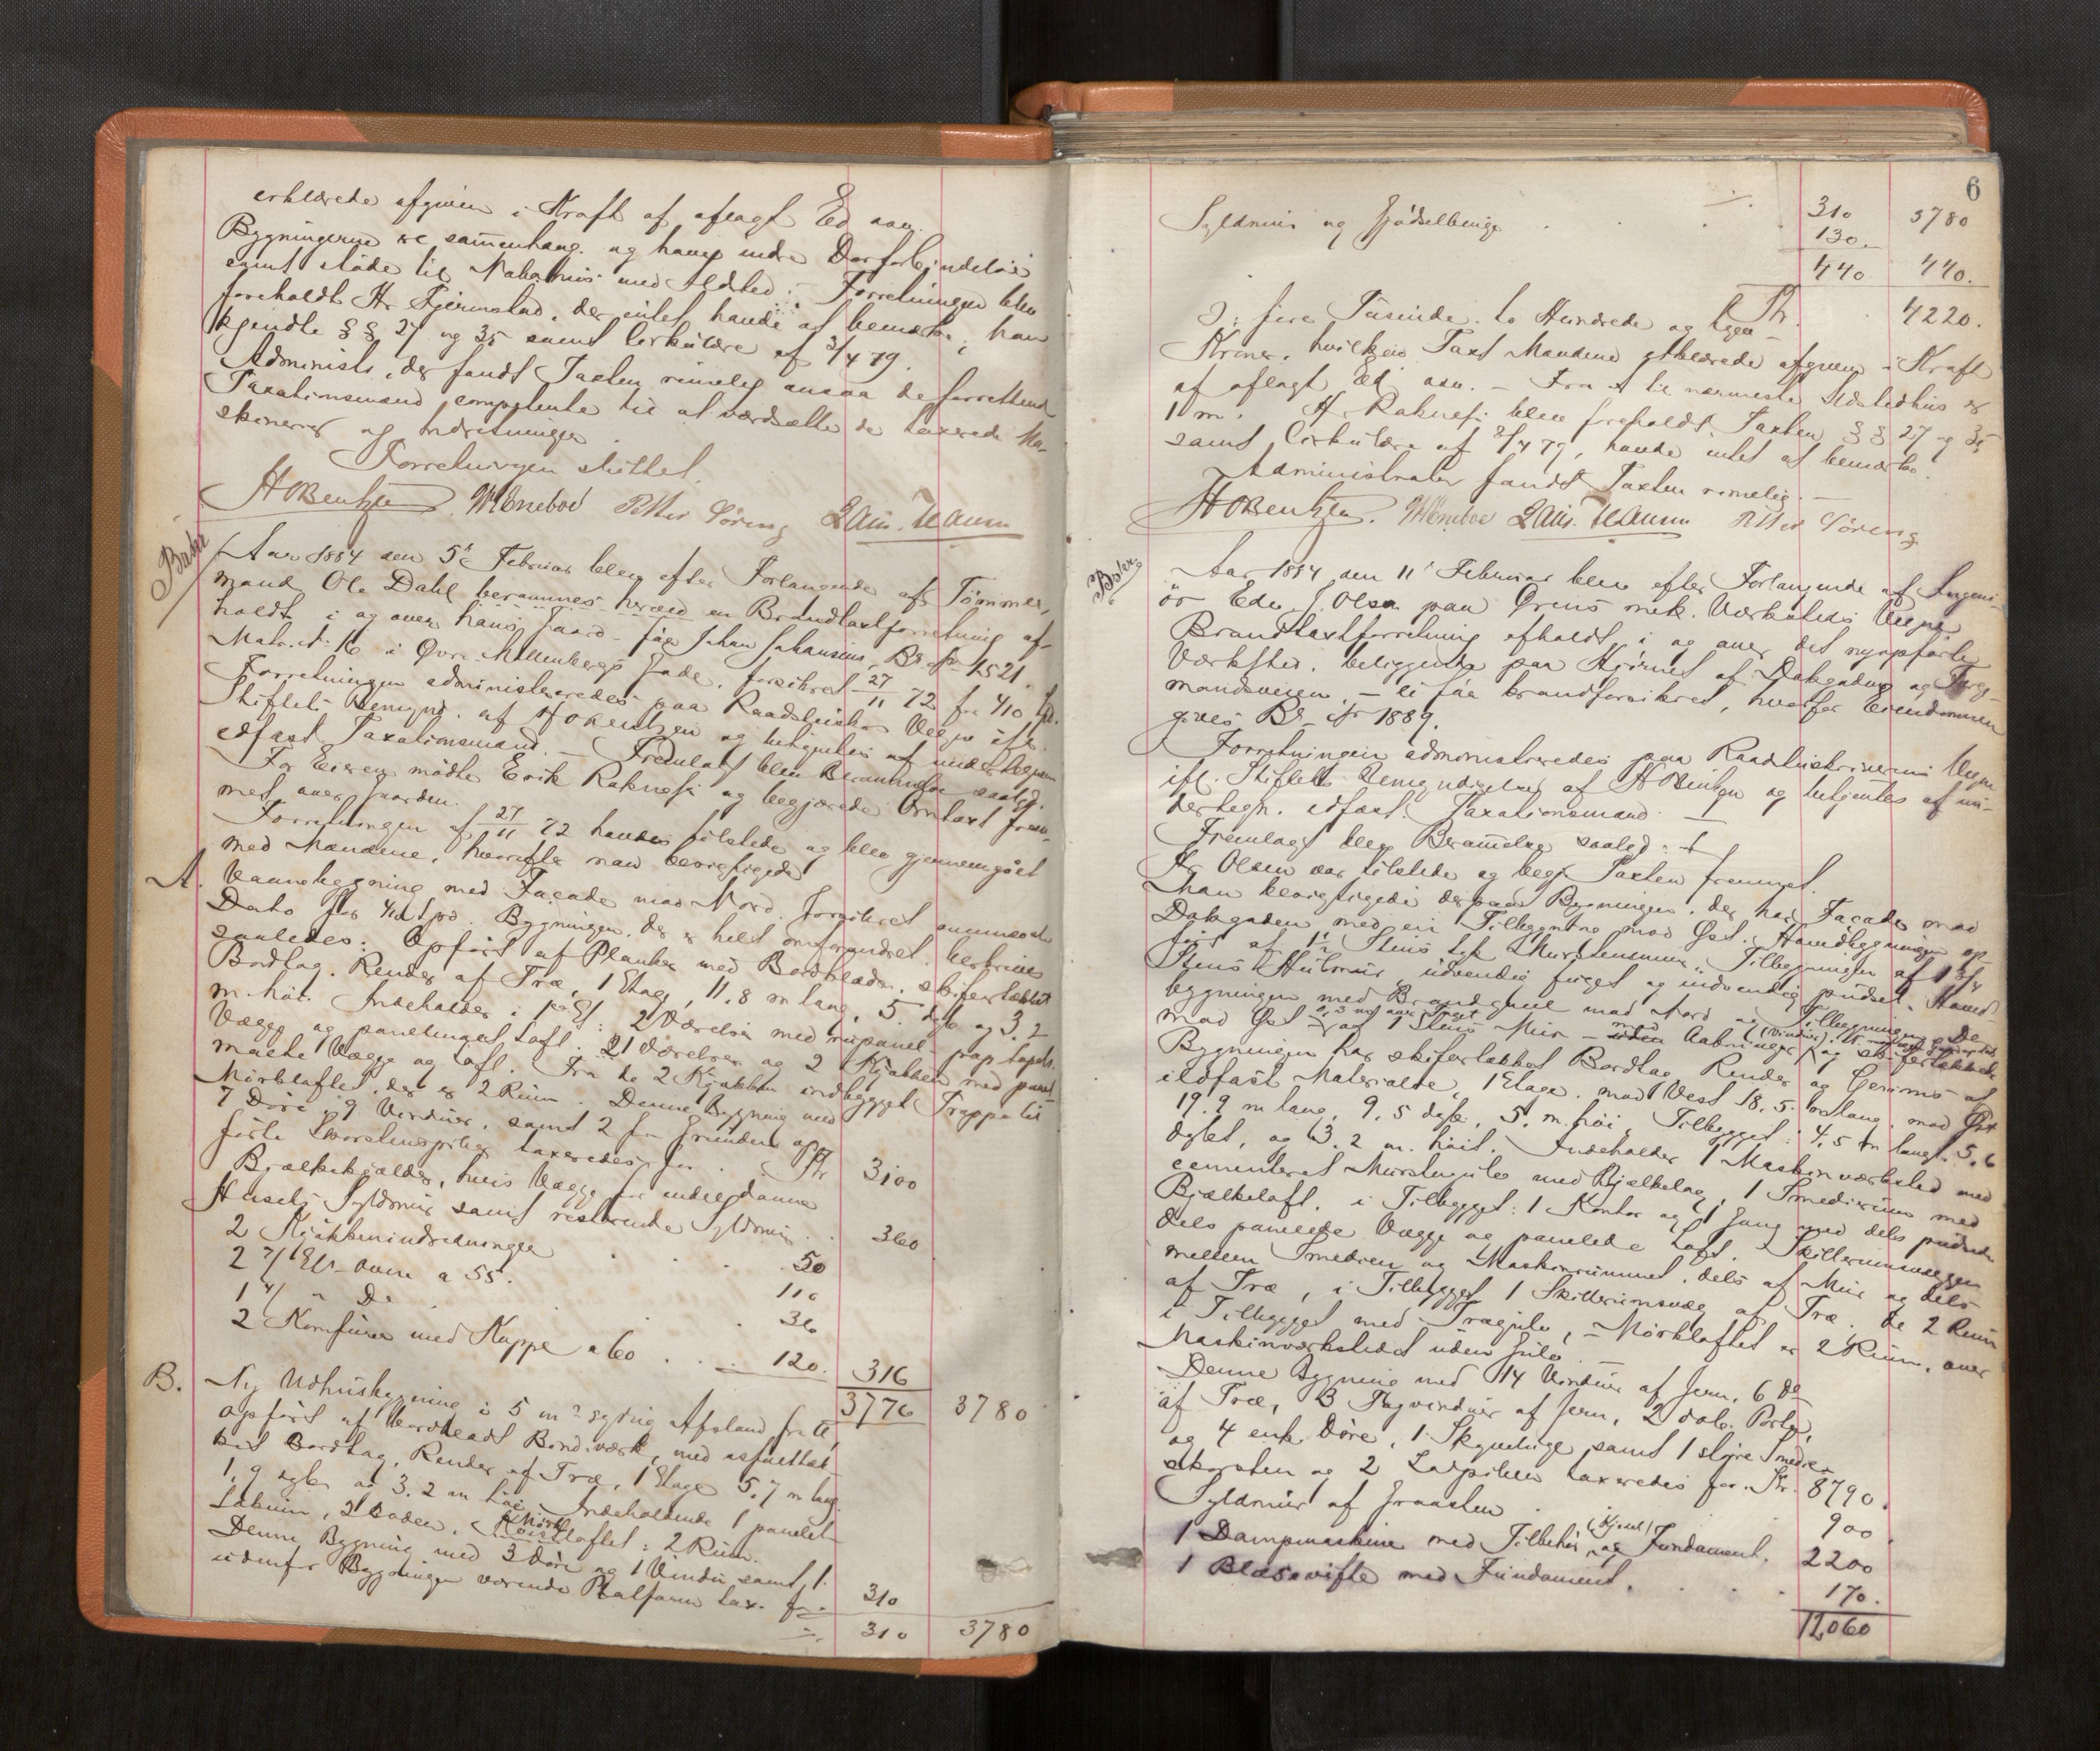 erklærede afgiven i Kraft af aflagt Ed
Bygningerne er sammenhæng. og have indre Dørforbindelse
samt støde til Nabohus med Ildsted. Forretningen blev
foreholdt Hr. Fjermstad, der intet havde at bemærke; han
kjendte §§ 27 og 35 samt Cirkulære af 8/4 79.
Administr. der fandt Taxten rimelig ansaa de forrettend
Taxationsmænd competente til at værdsætte de taxerede Ma-
skinerier og Indretninger.
Forretningen sluttet.
HOBentzen. MEneboe Petter Søreng Laur. Hansen
Aar 1884 den 5te Februar blev efter Forlangende af Tømmer-
mand Ole Dahl berammes en Brandtaxtforretning af-
holdt i og over hans Gaard fra Johan Johansens, Br. № 1521.
Matr. № 16 i Øvre Møllenbergs Gade, forsikret 27/11 72 for 410 Spd.
Forretningen administreredes paa Raadstuskr. Vegne ifl.
Stiftets Bemynd. af HOBentzen og betjentes af undertegnede
edfast. Taxationsmænd. — Fremlagt blev Berammelse saalyd.
For Eieren mødte Erik Raknes og begjærede Omtaxt frem-
met over Gaarden.
Forretningen af 27/11 72 havdes tilstede og blev gjennemgaaet
med Mændene, hvorefter man besigtigede
A. Vaanebygning med Façade mod Nord. forsikret
Dato for 410 Spd. Bygningen, der er helt omforandret, beskrives
saaledes: Opført af Planker med Bordklædn. skifertækket
Bordtag, Render af Træ, 1 Etage, 11,8 m lang, 5 dyb og 3,2
m høi. Indeholder i 1ste Et: 2 Værelser med papir. pap. tapets.
Vægge og panelinget Loft. 21 Værelser og 2 Kjøkken med panel
malte Vægge og Loft. Fra de 2 Kjøkken indbygget Trappe til
Mørkloftet, der er 2 Rum. Denne Bygning med
7 Døre, 9 Vinduer, samt 2 fra Grunden op-
førte Skorstenspiber taxeredes for . Kr. 3100
Bjælkekjælder, hvis Vægge for endeel danne
Husets Syldmur samt resterende Syldmur . . 360
2 Kjøkkenindretninger . . . 50
2 2/ Etg. Ovne a 55. 110
1 4/ " Do 36
2 Komfurer med Kappe a 60 . . . 120. 316
3776 3780
B. Ny Udhusbygning i 5 m sydlig Afstand fra A,
opført af bordklædt Bindværk, med asfalttæk-
ket Bordtag, Render af Træ, 1 Etage 5,7 m lang
1,9 dyb og 3,2 m høi. Indeholdende 1 panelet
Lokum, 2 Boder. Mørkloftet: 2 Rum.
Denne Bygning med 3 Døre og 1 Vindu samt 1
udenfor Bygningen værende Platform tax. for 310
310 3780
6
310 3780
Syldmur og Gjødselbinge . . . 130.
440 440.
Kr. 4220.
ɔ: fire Tusinde to Hundrede og tyve
Kroner. hvilken Taxt Mændene erklærede afgiven i Kraft
af aflagt Ed. — Fra A til nærmeste Ildstedhus er
1 m. Hr. Raknes blev foreholdt Taxten §§ 27 og 35
samt Cirkulære af 8/4 79, havde intet at bemærke.
Administrator fandt Taxten rimelig. —
HOBentzen. MEneboe Laur. Hansen Petter Søreng
Aar 1884 den 11te Februar blev efter Forlangende af Ingeni-
ör Edv. J. Olsen paa Ørens mek. Værksteds Vegne
Brandtaxtforretning afholdt i og over det nyopførte
Værksted, beliggende paa Hjørnet af Dokgaden og
mandsveien — ei før brandforsikret, hvorfor Eiendommen
gives Br. № 1889.
Forretningen administreredes paa Raadstuskriverens Vegne
ifl. Stiftets Bemyndigelse af HOBentzen og betjentes af un-
dertegn. edfast. Taxationsmænd. —
Fremlagt blev Berammelse saalyd: —
Hr. Olsen var tilstede og begj. Taxten fremmet.
Man besigtigede derpaa Bygningen. der har Façade mod
Dokgaden med en Tilbygning mod Øst. Hovedbygningen op-
ført af 1½ Stens tyk Murstensmur, Tilbygningen af 1¼
Stens Hulmur udvendig fuget og indvendig pudset. Hoved-
bygningen med Brandgavl mod Nord og Tilbygningen Do
mod Øst af 1 Stens Mur — med Aabninger (Vinduer)
Bygningen har skifertækket Bordtag, Render og Gesims af
ildfast Materiale, 1 Etage, mod Vest 18,5 m lang, mod Øst
19,9 m lang, 9,5 dyb, 5 m høi. Tilbygget: 4,5 m langt, 5,6
dybt, og 3,2 m. høit. Indeholder 1 Maskinværksted med
cementeret Murstensgulv med Bjælkelag, 1 Smedierum med
Bjælkeloft. i Tilbygget: 1 Kontor og 1 Gang med dels pudsede
dels panelede Vægge og panelede Loft. Skillerumsvæggen
mellem Smedien og Maskinrummet, dels af Mur og dels
af Træ, i Tilbygget 1 Skillerumsvæg af Træ. De 2 Rum
i Tilbygget med Trægulv, — Mørkloftet er 2 Rum, over
Maskinværkstedet uden Gulv. —
Denne Bygning med 14 Vinduer af Jern, 6 Do
af Træ, 3 Tagvinduer af Jern, 2 dob. Porte,
og 4 enk. Døre, 1 Skyveluge samt 1 støre Smedie-
skorsten og 2 Løspiber taxeredes for . Kr. 8790.
Syldmur af Graasten . . 900
1 Dampmaskine med Tilbehør (Kjedel) og Fundament. 2200
1 Blæsevifte med Fundament. . . . 170.
12,060